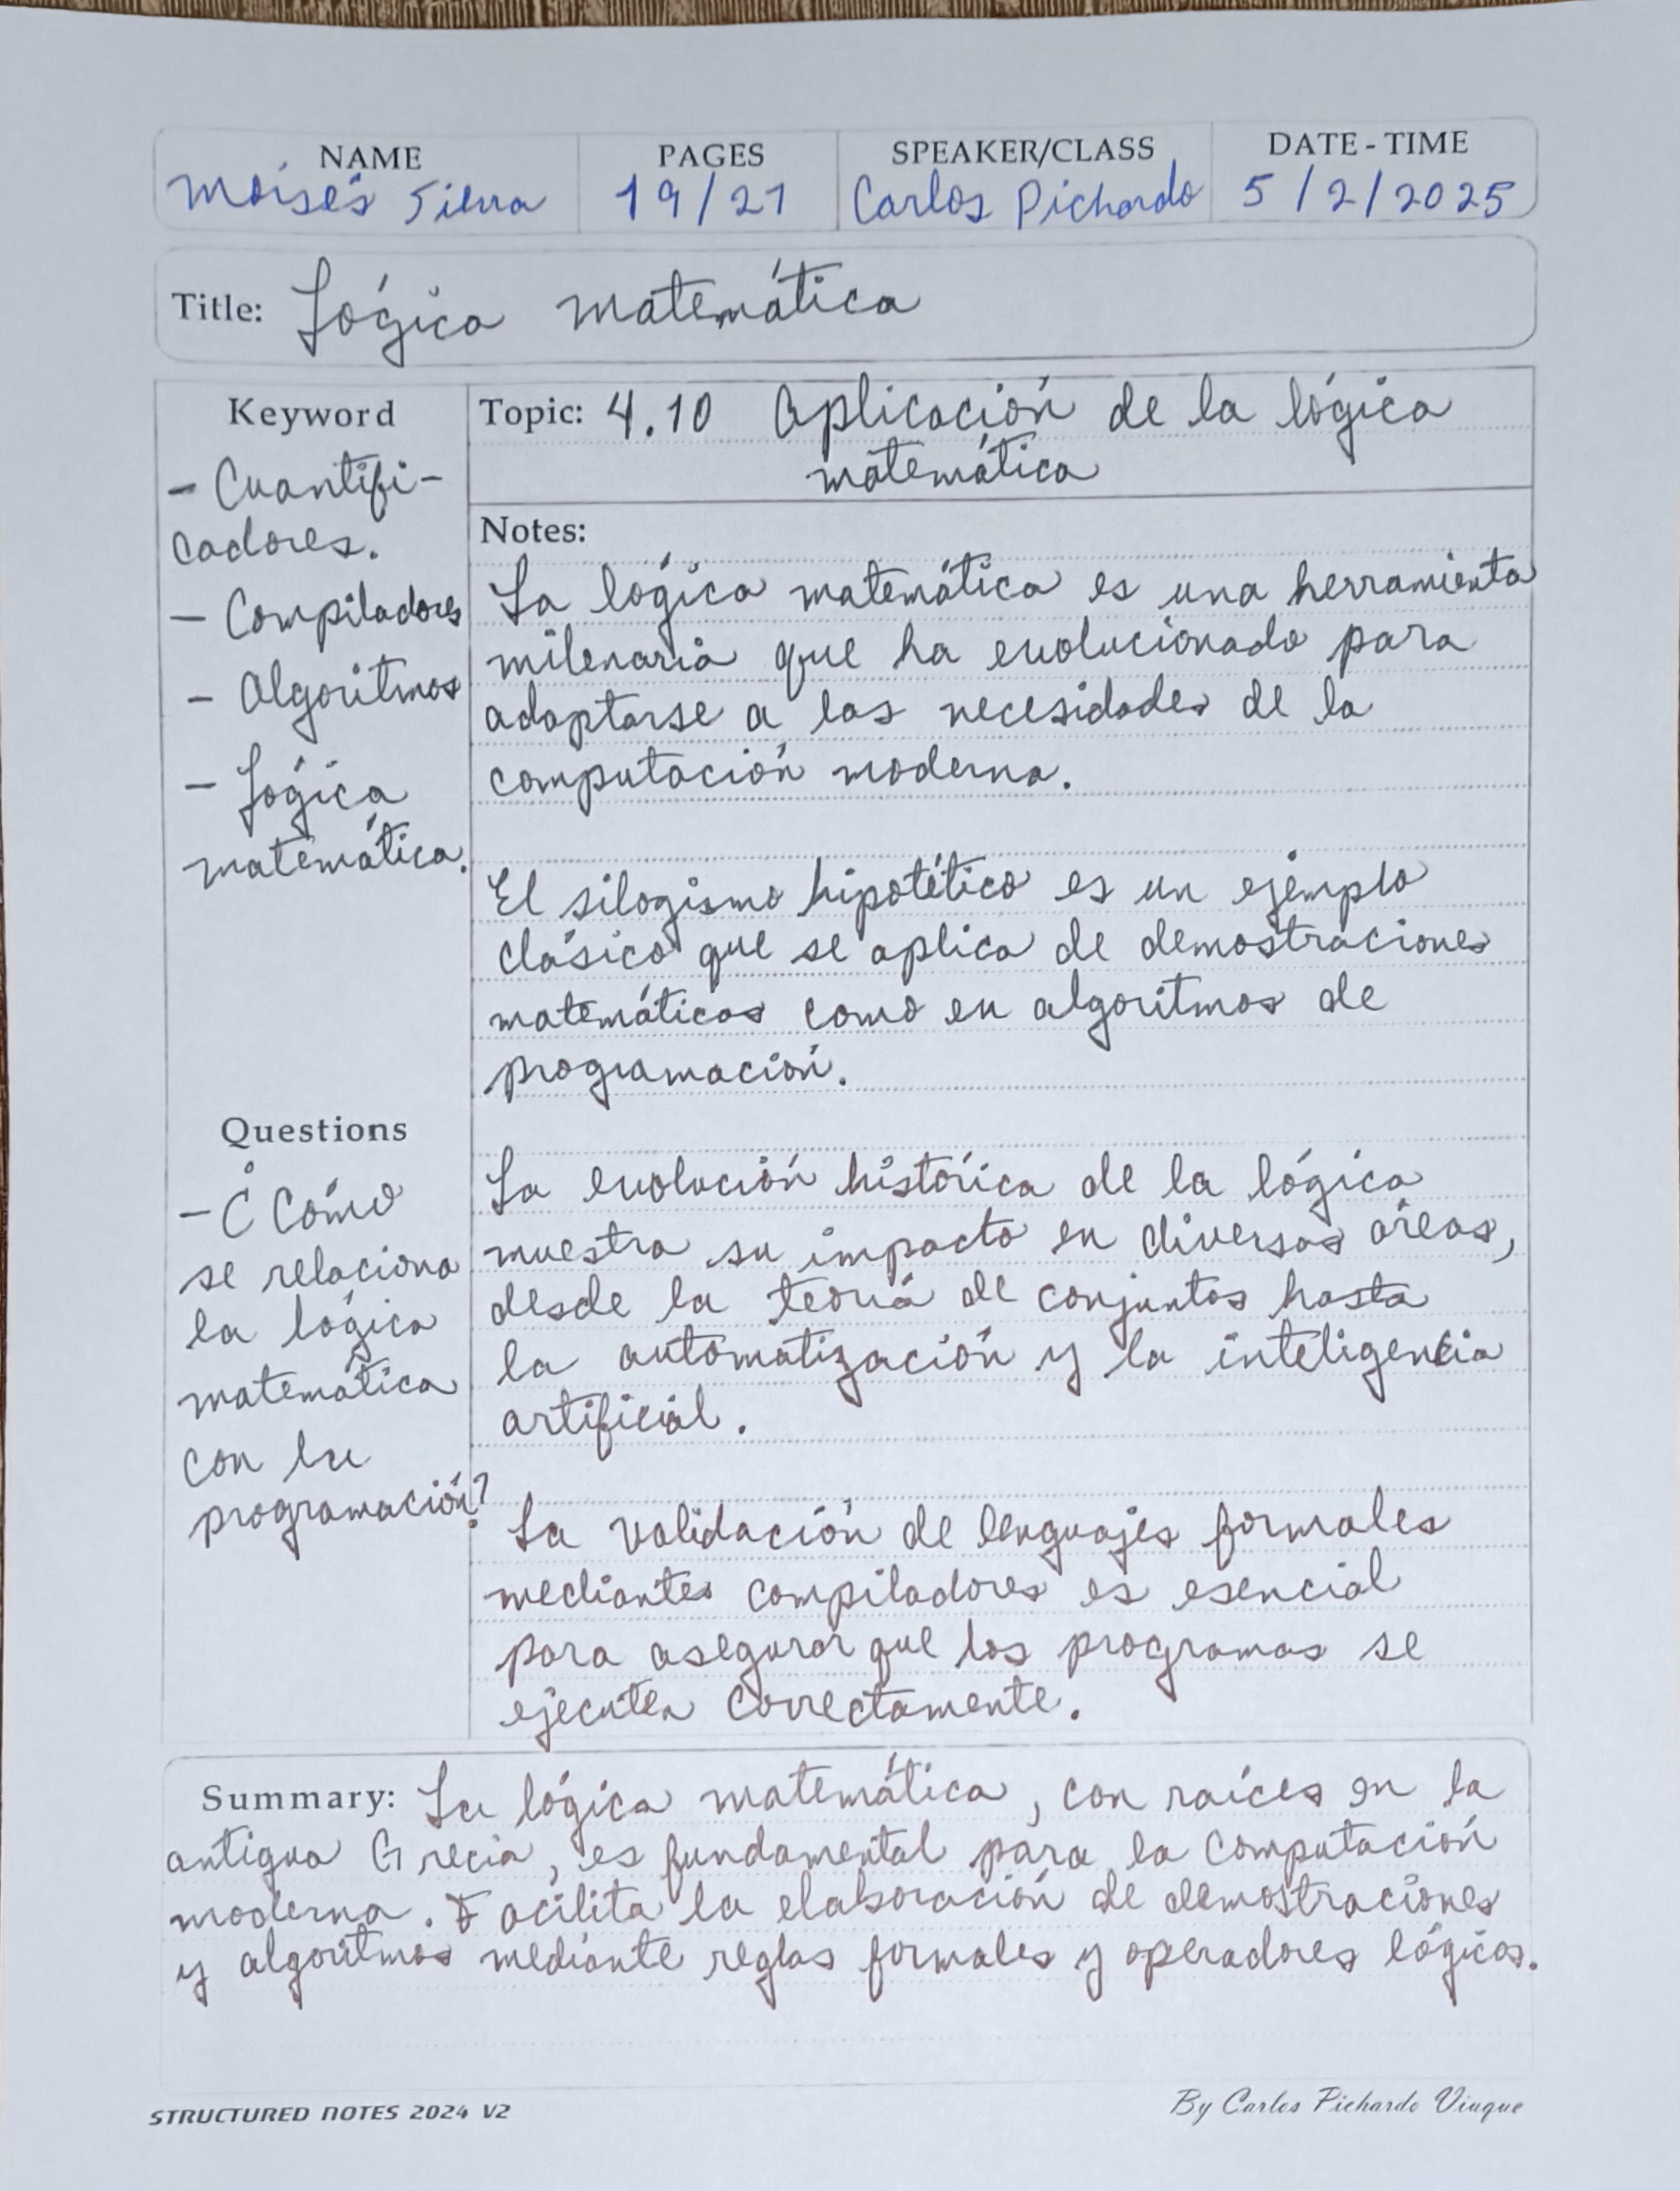 NAME PAGES SPEAKER/CLASS DATE-TIME
Moisés Silva 19/21 Carlos Pichardo 5/2/2025
Title: Lógica matemática
Keyword
- Cuantifi-
cadores.
- Compiladores
- Algoritmos
- Lógica
matemática.
Questions
- ¿Cómo
se relaciona
la lógica
matemática
con la
programación?
Topic: 4.10 Aplicación de la lógica
matemática
Notes:
La lógica matemática es una herramienta
milenaria que ha evolucionado para
adaptarse a las necesidades de la
computación moderna.
El silogismo hipotético es un ejemplo
clásico que se aplica de demostraciones
matemáticas como en algoritmos de
programación.
La evolución histórica de la lógica
muestra su impacto en diversas áreas,
desde la teoría de conjuntos hasta
la automatización y la inteligencia
artificial.
La validación de lenguajes formales
mediantes compiladores es esencial
para asegurar que los programas se
ejecuten correctamente.
Summary: La lógica matemática, con raíces en la
antigua Grecia, es fundamental para la computación
moderna. Facilita la elaboración de demostraciones
y algoritmos mediante reglas formales y operadores lógicos.
STRUCTURED NOTES 2024 V2 By Carlos Pichardo Viuque